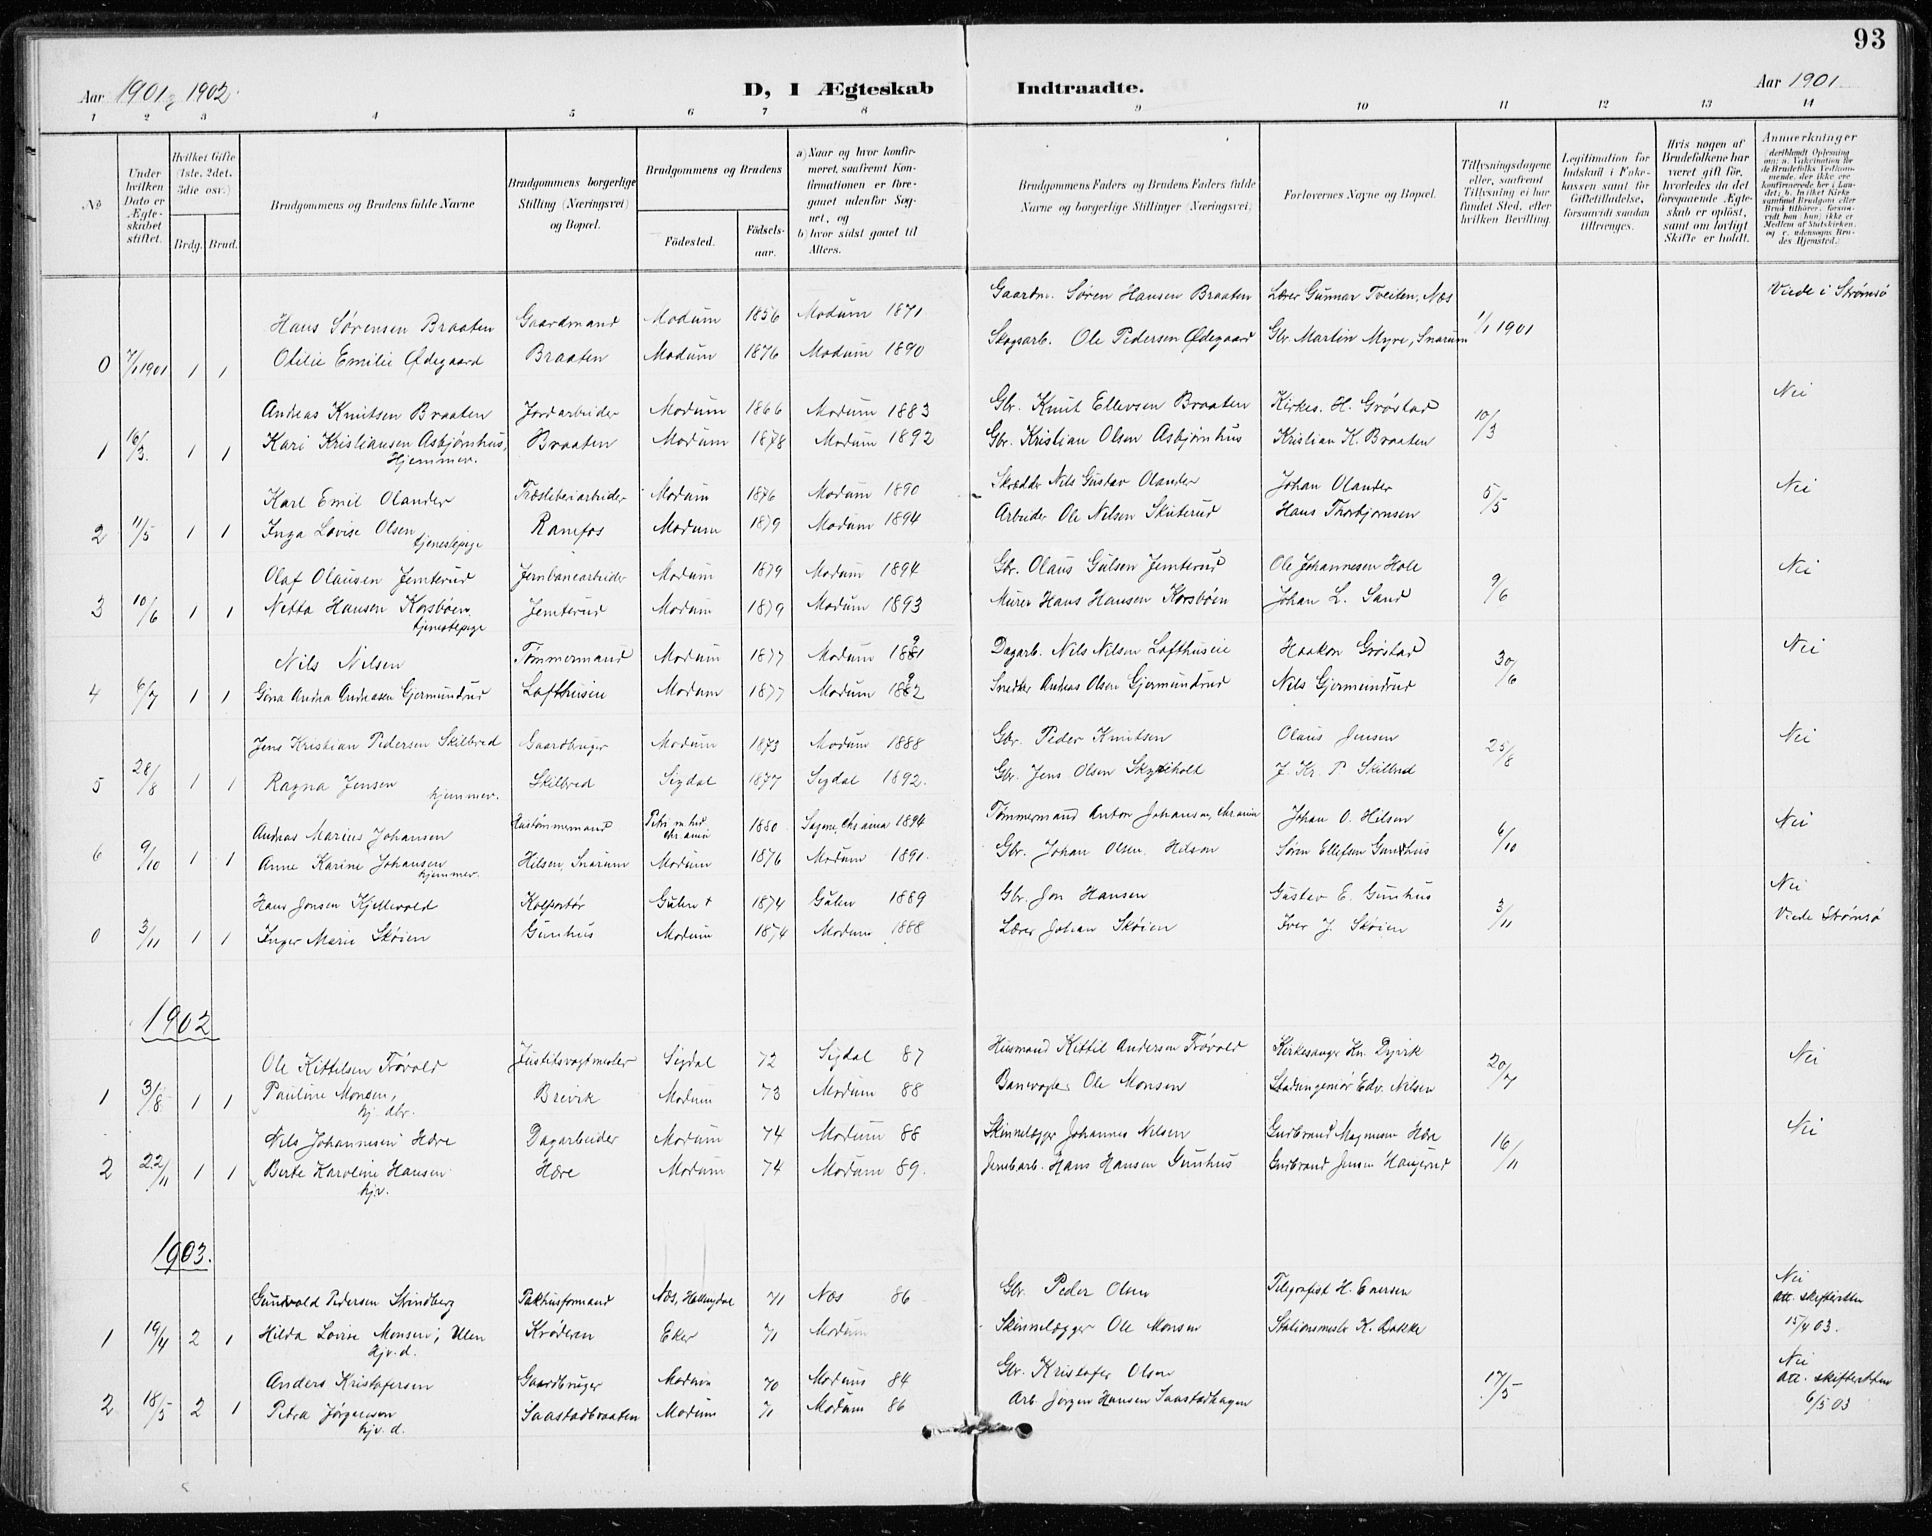 93
Aar 1901 & 1902.
D, I Ægteskab Indtraadte.
Aar 1901
1 2 3 4 5 6 7 8 9 10 11 12 13 14
No
Under hvilken Dato er Ægteskabet stiftet.
Hvilket Gifte (1ste, 2det, 3die osv.)
Brdg. Brud.
Brudgommens og Brudens fulde Navne
Brudgommens borgerlige Stilling (Næringsvei) og Bopæl.
Brudgommens og Brudens
Fødested.
Fødselsaar.
a) Naar og hvor konfirmeret, saafremt Konfirmationen er foregaaet udenfor Sognet, og
b) hvor sidst gaaet til Alters.
Brudgommens Faders og Brudens Faders fulde Navne og borgerlige Stillinger (Næringsvei)
Forlovernes Navne og Bopæl.
Tillysningsdagene eller, saafremt Tillysning ei har fundet Sted, efter hvilken Bevilling.
Legitimation for Indskud i Enkekassen samt for Giftetilladelse, forsaavidt saadan tiltrænges.
Hvis nogen af Brudefolkene har været gift før, hvorledes da det foregaaende Ægteskab er opløst, samt om lovligt Skifte er holdt.
Anmærkninger (deriblandt Oplysning om: a. Vakcination for de Brudefolks Vedkommende, der ikke ere konfirmerede her i Landet; b. hvilket Kirkesamfund Brudgom eller Brud tilhører, forsaavidt han (hun) ikke er Medlem af Statskirken, og c. udensogns Brudes Hjemsted.)
Gaardm. Søren Hansen Braaten Lærer Gunnar Tveiten, Næs Viede i Strømsø
Hans Sørensen Braaten Gaardmand Modum 1856 Modum 1871
Skogsarb. Ole Pedersen Ødegaard Gbr. Martin Myre, Snarum 1/1 1901
0 7/1 1901 1 1 Otilie Emilie Ødegaard Braaten Modum 1876 Modum 1890
Andreas Knutsen Braaten Jordarbeider Modum 1866 Modum 1883 Gbr. Knut Ellevsen Braaten Kirkes. H. Grøstad 10/3 Nei
1 16/3. 1 1 Kari Kristiansen Asbjørnhus, Braaten Modum 1878 Modum 1892 Gbr. Kristian Olsen Asbjørnhus Kristian K. Braaten
Hjemmev.
Karl Emil Olander Træsliberiarbeider Modum 1876 Modum 1890 Skrædder Nils Gustav Olander Johan Olander 5/5 Nei
2 11/5 1 1 Inga Lovise Olsen Ramfos Modum 1879 Modum 1894 Arbeider Ole Nilsen Skuterud Hans Thorbjørnsen
tjenestepige
Olaf Olausen Jemterud Jernbanearbeider Modum 1879 Modum 1894 Gbr. Olaus Gulsen Jemterud Ole Johannesen Hole 9/6 Nei
3 10/6 1 1 Netta Hansen Korsbøen, Jemterud Modum 1879 Modum 1893 Murer Hans Hansen Korsbøen Johan L. Sand
tjenestepige
Nils Nilsen Tømmermand Modum 1877 Modum 1891 Dagarb. Nils Nilsen Lofthuseie Haakon Grøstad 30/6 Nei
4 6/7 1 1 Gina Andrea Andreasen Gjermundrud Lofthuseie Modum 1877 Modum 1892 Snedker Andreas Olsen Gjermundrud Nils Gjermundrud
Jens Kristian Pedersen Skilbred Gaardbruger Modum 1873 Modum 1888 Gbr. Peder Knutsen Olaus Jensen 25/8 Nei
5 28/8 1 1 Ragna Jensen Skilbred Sigdal 1877 Sigdal 1892. Gbr. Jens Olsen J. Kr. P. Skilbred
hjemmev.
Andreas Marius Johansen Hustømmermand 1880 Sagene, Chr.ania 1894 Tømmermand Anton Johansen, Chr.ania Johan O. Hilsen 6/10 Nei
6 9/10 1 1 Anne Karine Johansen Hilsen, Snarum Modum 1876 Modum 1891. Gbr. Johan Olsen Hilsen Søren Ellefsen Gunhus
hjemmev.
Hans Jonsen Kjellevold Kolportør Gulen 1874 Gulen 1889 Gbr. Jon Hansen Gustav E. Gunhus 3/11 Nei
0 3/11 1 1 Inger Marie Skøien Gunhus Modum 1874 Modum 1888 Lærer Johan Skøien Iver J. Skøien Viede Strømsø
1902
Ole Kittilsen Trøvold Justitsvagtmester Sigdal 72 Sigdal 87 Husmand Kittil Andersen Trøvold Kirkesanger Kn. Dyvik 20/7 Nei
1 3/8 1 1 Pauline Monsen, Brevik Modum 73 Modum 88 Banevogter Ole Monsen Stadsingeniør Edv. Nilsen
hj. dtr.
Nils Johannesen Hære Dagarbeider Modum 74 Modum 88 Skinnelægger Johannes Nilsen Gudbrand Magnusen Hære 16/11 Nei
2 22/11 1 1 Berte Karoline Hansen Hære Modum 74 Modum 89. Jernbarb. Hans Hansen Gunhus Gudbrand Jensen Haugerud
hjv.
1903.
Gundvold Pedersen Strindberg Pakhusformand Næs, Hallingdal 71 Næs 86 Gbr. Peder Olsen Telegrafist H. Enersen Nei
Att. skifteretten
1 19/4 2 1 Hilda Lovise Monsen, Ulen Krøderen Eker 71 Modum Skinnelægger Ole Monsen Stationsmester K. Bakke 15/4 03.
hjv. d.
Anders Kristofersen Gaardbruger Modum 70 Modum 84 Gbr. Kristofer Olsen 17/5 Nei
Att. skifteretten
2 18/5 2 1 Petra Jørgensen Saastadbraaten Modum 71 Modum 86 Arb. Jørgen Hansen Saastadhagen 6/5 03
hjv. d.